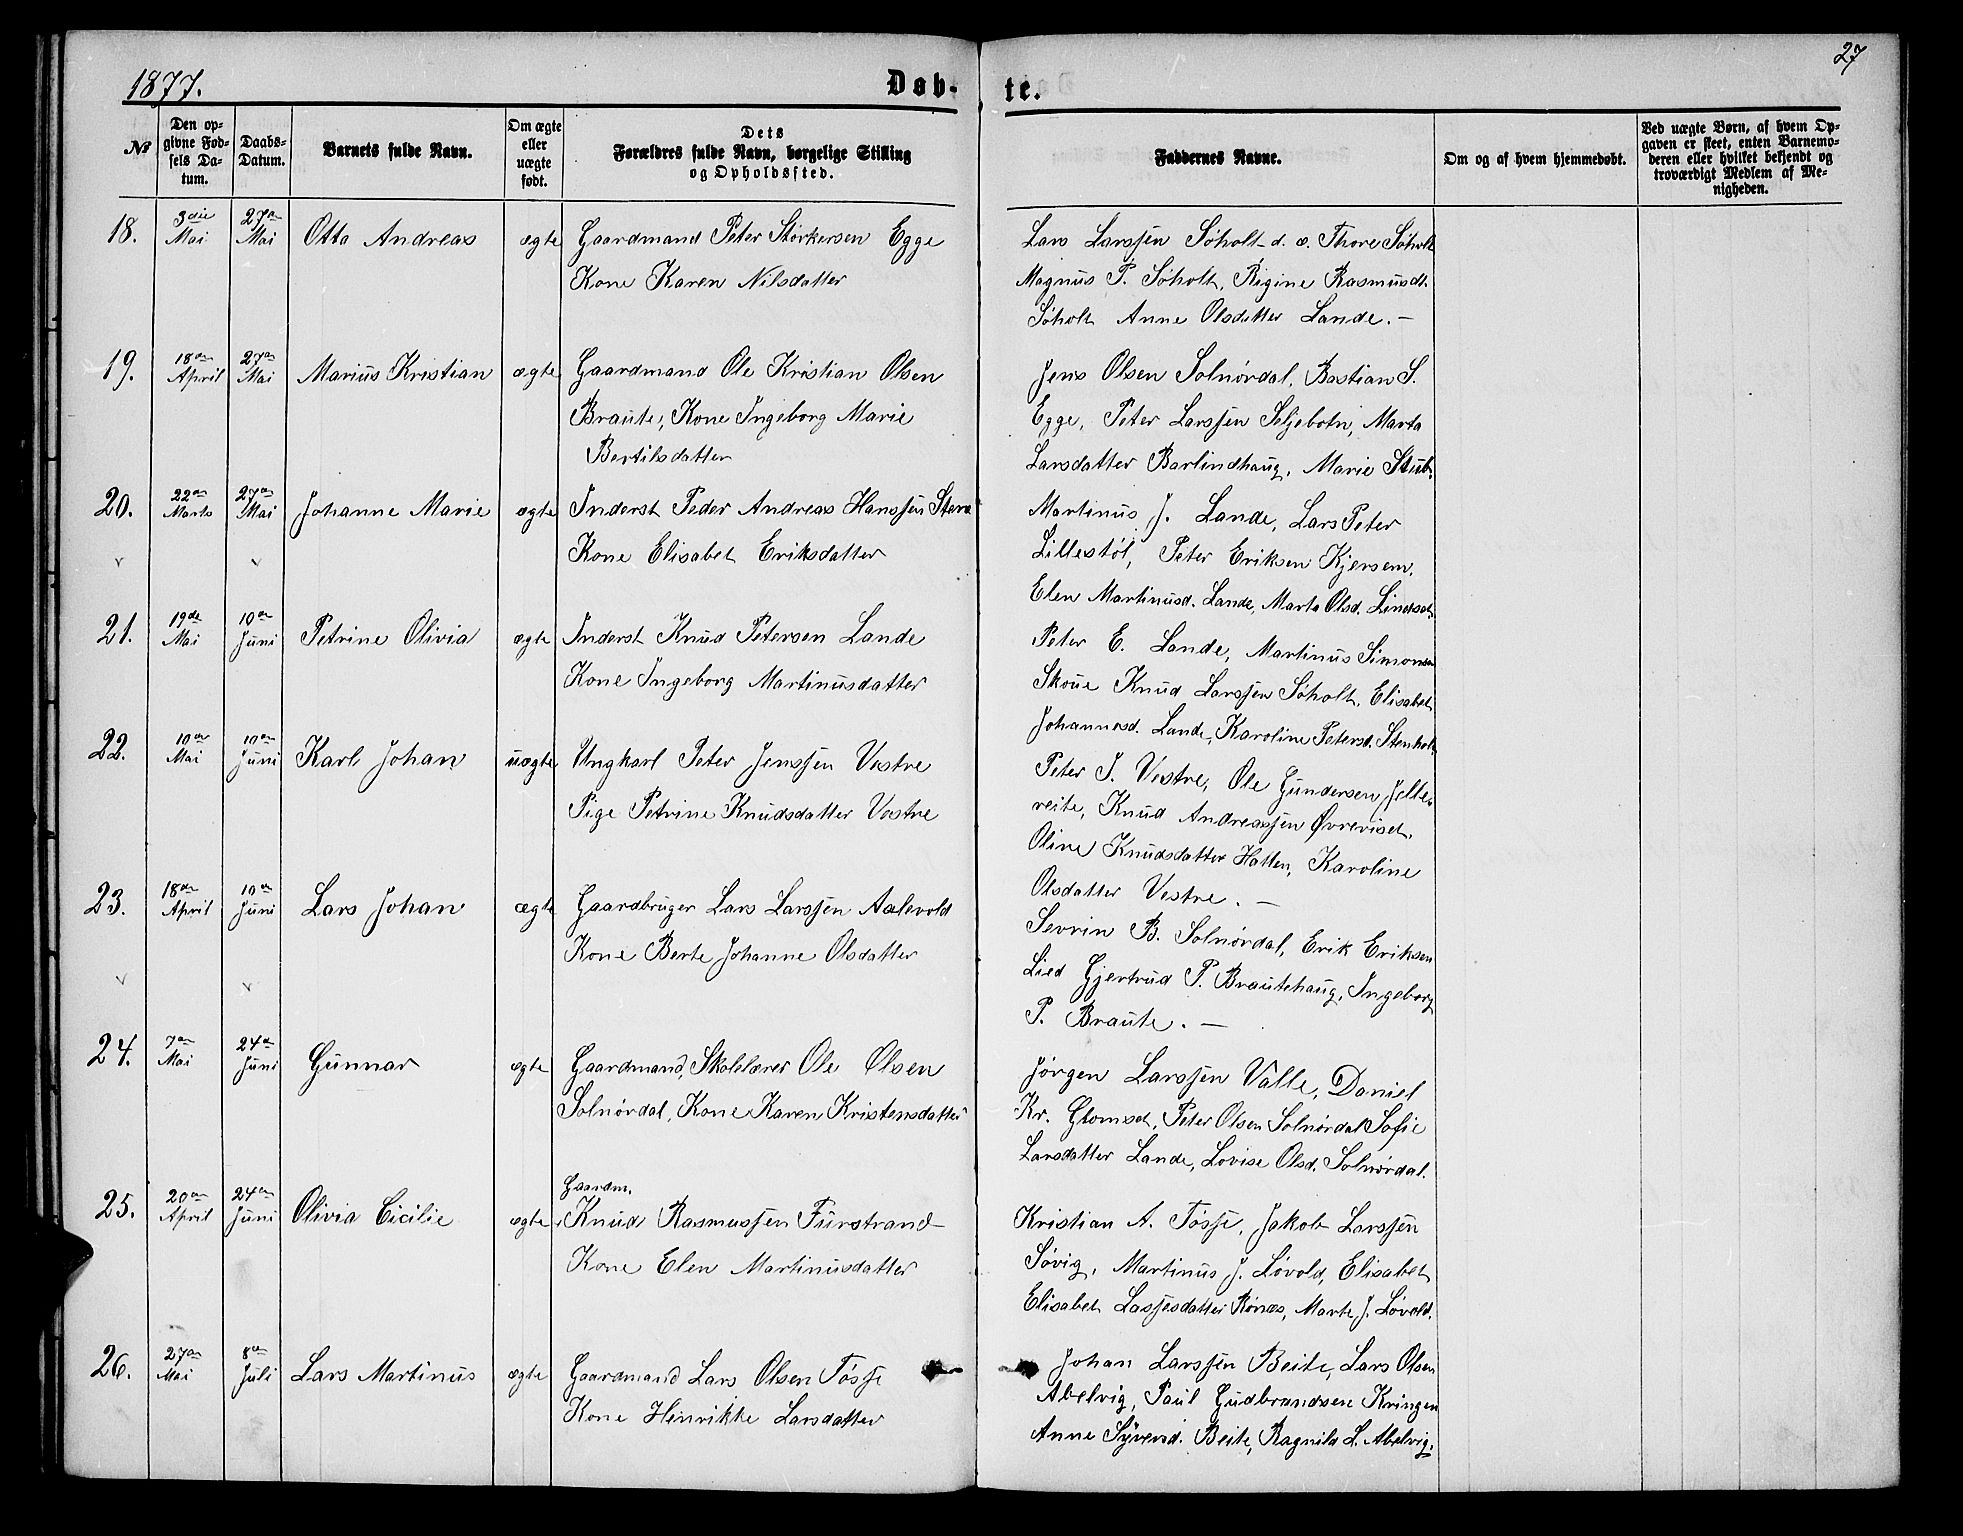 1877.
Døb-
te.
27
№
Den op-
givne Fød-
sels Da-
tum.
Daabs-
Datum.
Barnets fulde Navn.
Om ægte
eller
uægte
født.
Dets
Forældres fulde Navn, borgelige Stilling
og Opholdssted.
Faddernes Navne.
Om og af hvem hjemmedøbt.
Ved uægte Børn, af hvem Op-
gaven er skeet, enten Barnemo-
deren eller hvilket bekjendt og
troværdigt Medlem af Me-
nigheden.
18. 3die Mai 27de Mai Otto Andreas ægte Gaardmand Peter Størkersen Egge
Kone Karen Nilsdatter
Lars Larssen Søholt d. æ. Thore Søholt
Magnus P. Søholt, Rigine Rasmusdt.
Søholt Anne Olsdatter Lande. —
19. 18de April 27de Mai Marius Kristian ægte Gaardmand Ole Kristian Olsen
Braute, Kone Ingeborg Marie
Bertilsdatter
Jens Olsen Solnørdal, Bastian S.
Egge, Peter Larssen Seljebotn, Marta
Larsdatter Barlindhaug, Marie Stub.
20. 22de Marts 27de Mai Johanne Marie ægte Inderst Peder Andreas Hanssen
Kone Elisabet Eriksdatter
Martinus J. Lande, Lars Peter
Lillestøl, Peter Eriksen Kjersem,
Elen Martinusd. Lande, Marte Olsd. Lindset
21. 19de Mai 10de Juni Petrine Olivia ægte Inderst Knud Petersen Lande
Kone Ingeborg Martinusdatter
Peter E. Lande, Martinus Simonsen
Skoue Knud Larssen Søholt, Elisabet
Johannesd. Lande, Karoline Petersd. Stenholt
22. 10de Mai 10de Juni Karl Johan uægte Ungkarl Peter Jenssen Vestre
Pige Petrine Knudsdatter Vestre
Peter J. Vestre, Ole Gundersen Jelle-
reite, Knud Andreassen Øvreviset,
Oline Knudsdatter Hatten, Karoline
Olsdatter Vestre. —
23. 18de April 10de Juni Lars Johan ægte Gaardbruger Lars Larssen Aalevold
Kone Berte Johanne Olsdatter
Sevrin B. Solnørdal, Erik Eriksen
Lied Gjertrud P. Brautehaug, Ingeborg
P. Braute. —
24. 7de Mai 24de Juni Gunnar ægte Gaardmand, Skolelærer Ole Olsen
Solnørdal, Kone Karen Kristensdatter
Jørgen Larssen Valle, Daniel
Kr. Glomset, Peter Olsen Solnørdal Sofie
Larsdatter Lande, Lovise Olsd. Solnørdal.
25. 20de April 24de Juni Olivia Cicilie ægte Gaardm.
Knud Rasmussen Furstrand
Kone Elen Martinusdatter
Kristian A. Tøsse, Jakob Larssen
Søvig, Martinus J. Løvold, Elisabet
Elisabet Lassesdatter Rønes, Marte J. Løvold.
26. 27de Mai 8de Juli Lars Martinus ægte Gaardmand Lars Olsen Tøsse
Kone Hinrikke Larsdatter
Johan Larssen Beite, Lars Olsen
Abelvig, Paul Gudbrandsen Kringen
Anne Syversd. Beite, Ragnild L. Abelvig.